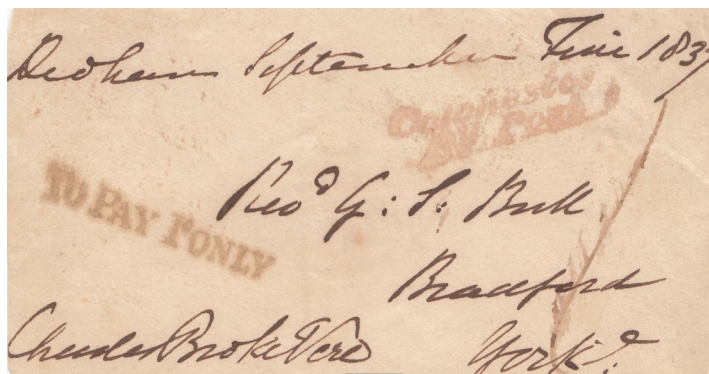 Dedham September Five 1837
Colchester
Py Post
TO PAY 1 ONLY
Revd G: S: Bull
Bradford
Charles Broke Vere
Yorke.